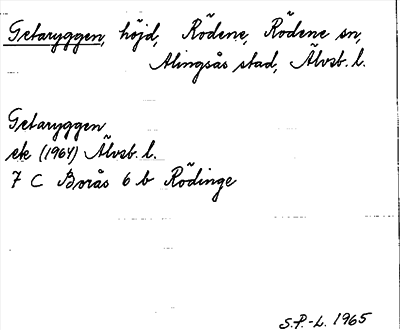 Getaryggen, höjd, Rödene, Rödene sn,
Alingsås stad, Älvsb. l.
Getaryggen
ek (1964) Älvsb. l.
7 C Borås 6 b Rödinge
S.P.-L. 1965